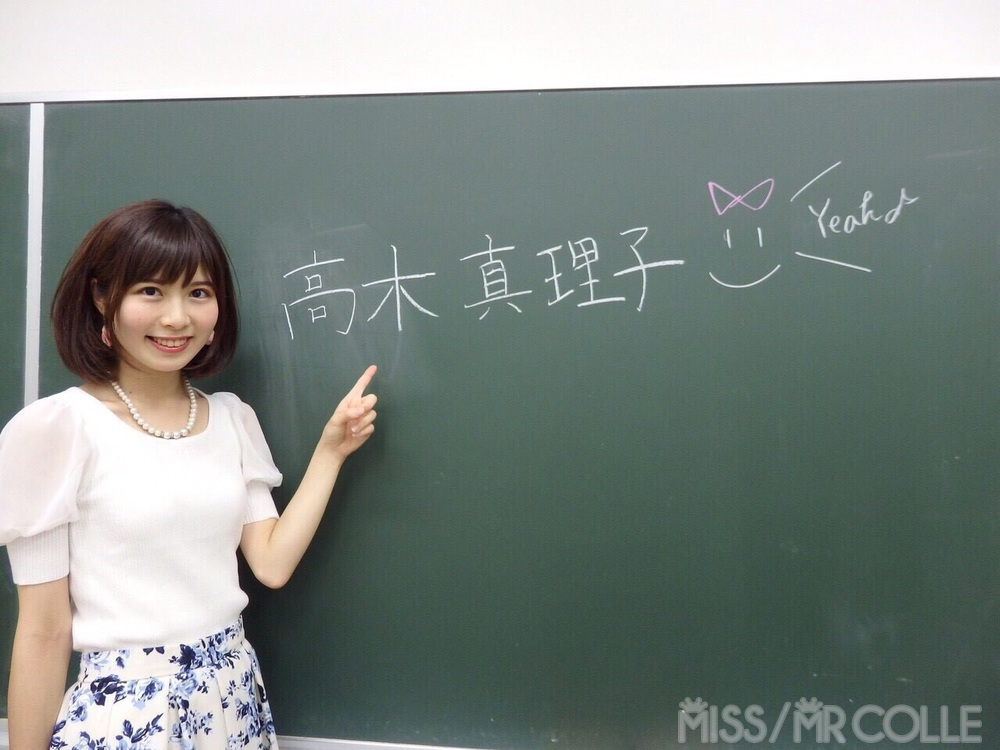 高木 真理子
Yeah♪
MISS/MR COLLE